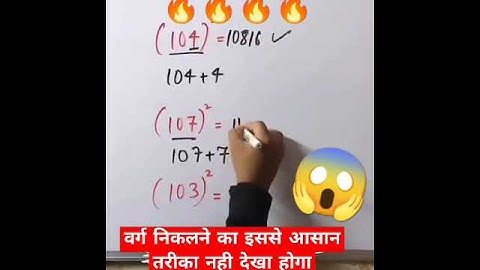 (104)² = 10816 ✓
104+4
(107)² = 11
107+7
(103)² =
वर्ग निकलने का इससे आसान
तरीका नही देखा होगा